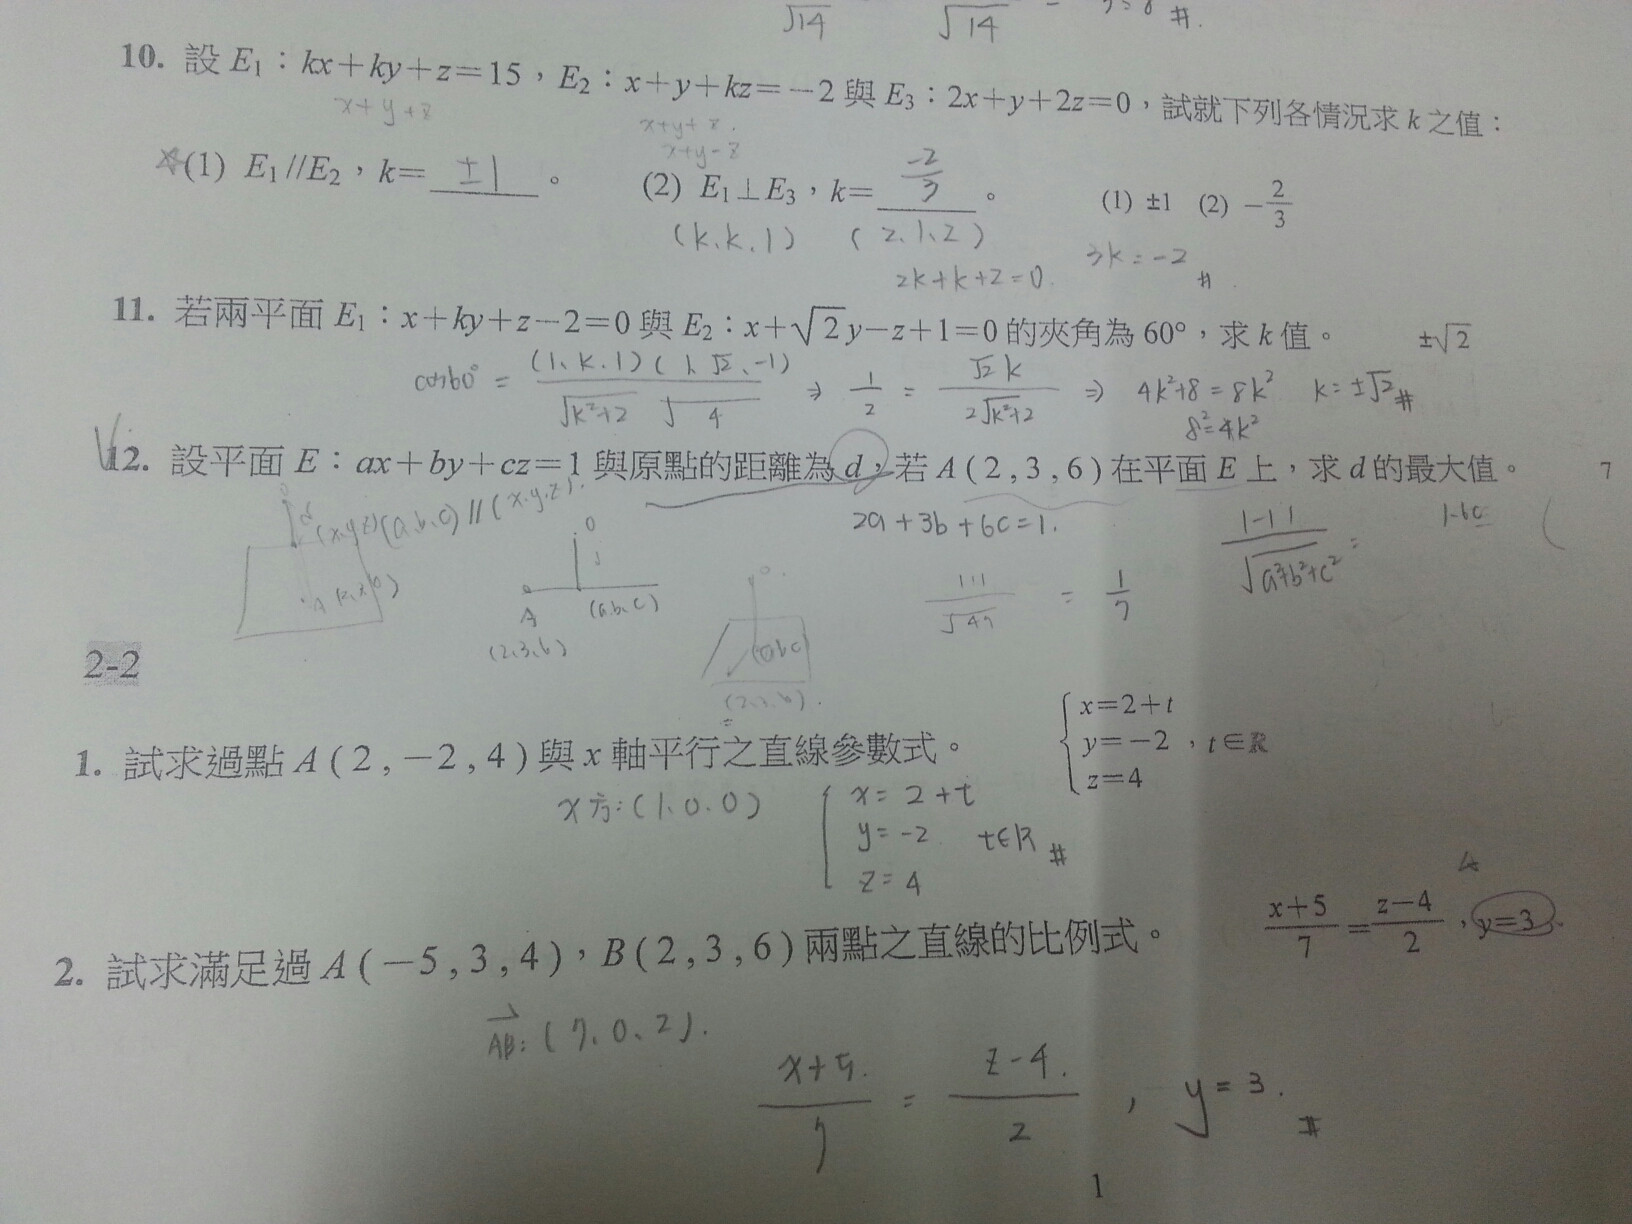 √14 √14 = #.
10. 設 E₁：kx+ky+z=15，E₂：x+y+kz=-2 與 E₃：2x+y+2z=0，試就下列各情況求 k 之值：
x+y+z x+y+z.
x+y-z
(1) E₁//E₂，k= ±1 。 (2) E₁⊥E₃，k= -2/3 。 (1) ±1 (2) -2/3
(k,k,1) (2,1,2)
2k+k+2=0. 3k=-2 #
11. 若兩平面 E₁：x+ky+z-2=0 與 E₂：x+√2y-z+1=0 的夾角為 60°，求 k 值。 ±√2
cos60° = (1,k,1)(1,√2,-1)/√k²+2 √4 ⇒ 1/2 = √2k/2√k²+2 ⇒ 4k²+8=8k² k=±√2 #
8=4k²
12. 設平面 E：ax+by+cz=1 與原點的距離為 d，若 A(2,3,6) 在平面 E 上，求 d 的最大值。 7
(x,y,z)(a,b,c)//(x,y,z). 2a+3b+6c=1. |-1|/√a²+b²+c² = 1-6c
O A (2,3,6) (a,b,c) |1|/√49 = 1/7
(abc)
(2,3,6).
2-2
1. 試求過點 A(2,-2,4) 與 x 軸平行之直線參數式。 { x=2+t
y=-2 ，t∈ℝ
z=4
x方:(1,0,0) { x=2+t
y=-2 t∈R #
z=4
2. 試求滿足過 A(-5,3,4)，B(2,3,6) 兩點之直線的比例式。 x+5/7=z-4/2，y=3
AB:(7,0,2).
x+5/7 = z-4/2 , y=3. #
1